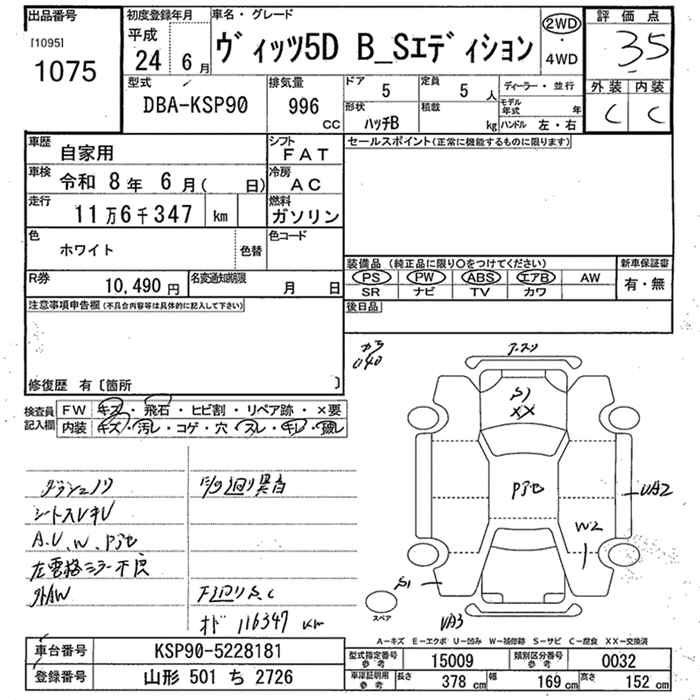 出品番号
[1095]
1075
初度登録年月
平成
24 6月
車名・グレード
ヴィッツ5D B_Sエディション
2WD
・
4WD
評価点
35
外装 内装
C C
型式
DBA-KSP90
排気量
996
CC
ドア
5
定員
5 人
形状
ハッチB
積載
kg
ディーラー・並行
モデル年式 年
ハンドル 左・右
車歴
自家用
シフト
FAT
車検
令和 8年 6月( 日)
冷房
AC
走行
11万6千347 km
燃料
ガソリン
色
ホワイト
色替
色コード
R券
10,490 円
名変通知期限
月 日
セールスポイント(正常に機能するものに限ります)
装備品 (純正品に限り○をつけてください)
PS PW ABS エアB AW
SR ナビ TV カワ
新車保証書
有・無
後日品
注意事項申告欄(不具合内容等は具体的に記入して下さい)
修復歴 有〔箇所 〕
検査員
記入欄
FW キズ・飛石・ヒビ割・リペア跡・×要
内装 キズ・汚レ・コゲ・穴・スレ・キレ・破レ
カラ
040
S1
XX
Pダセ
UA2
W2
S1
UA3
スペア
A.U.W.Pダセ
左電格ミラー不良
外AW
下廻りS.C
オド 116347 km
A-キズ E-エクボ U-凹み W-補修跡 S-サビ C-腐食 XX-交換済
車台番号
KSP90-5228181
登録番号
山形 501 ち 2726
型式指定番号
参考
15009
類別区分番号
参考
0032
車庫証明用
参考
長さ 378 cm 幅 169 cm 高さ 152 cm